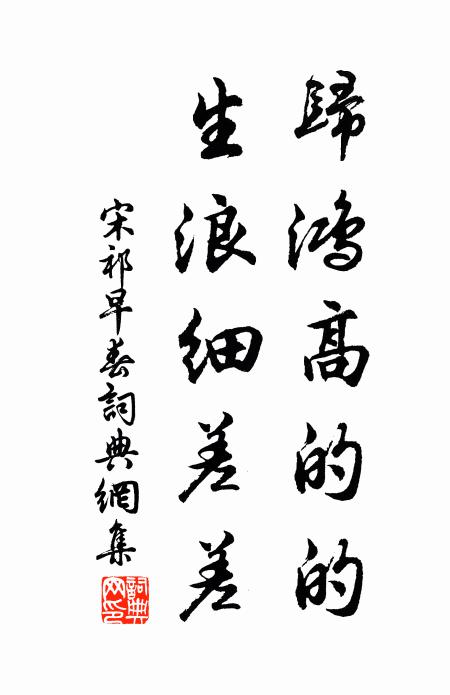 歸鴻高的的
生浪細差差
宋祁早春詞典網集
詞典網印